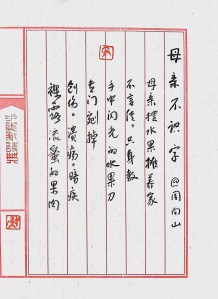 母亲不识字 @周向山
母亲摆水果摊养家
不言信，只身教
手中闪光的水果刀
专门剜掉
创伤。溃疡。暗疾
裸露流蜜的果肉